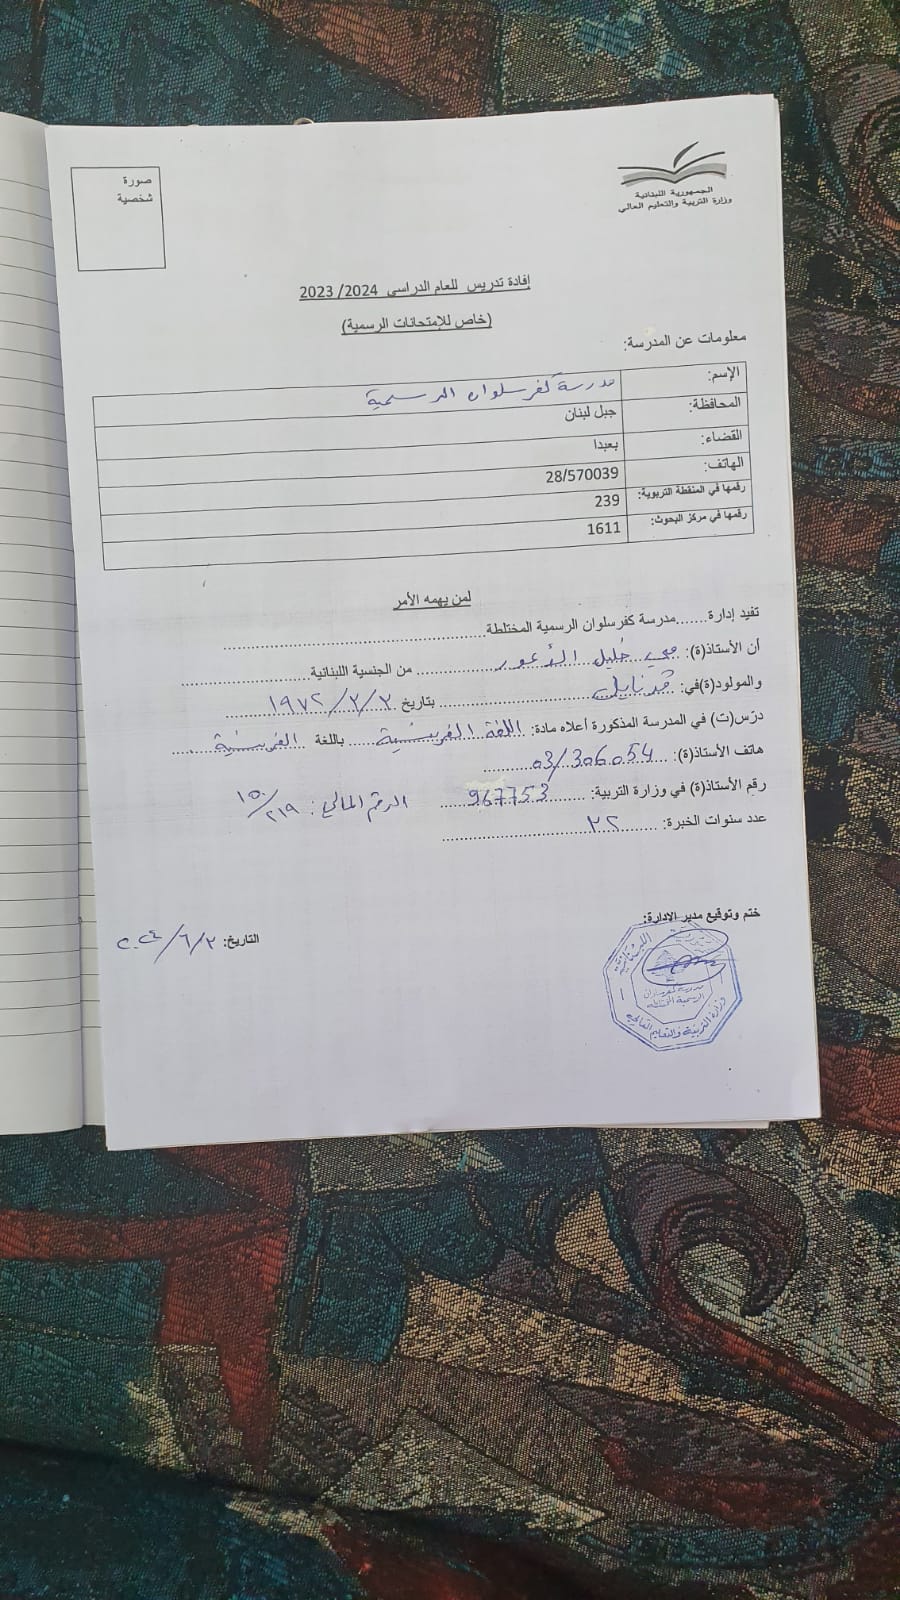 صورة
شخصية
الجمهورية اللبنانية
وزارة التربية والتعليم العالي
إفادة تدريس للعام الدراسي 2023/2024
(خاص للإمتحانات الرسمية)
معلومات عن المدرسة:
الإسم: مدرسة كفرسلوان الرسمية
المحافظة: جبل لبنان
القضاء: بعبدا
الهاتف: 28/570039
رقمها في المنقطة التربوية: 239
رقمها في مركز البحوث: 1611
لمن يهمه الأمر
تفيد إدارة.......مدرسة كفرسلوان الرسمية المختلطة
أن الأستاذ(ة): مي خليل الأعور من الجنسية اللبنانية
والمولود(ة)في: قرنايل بتاريخ ١٩٧٢/٢/٢
درّس(ت) في المدرسة المذكورة أعلاه مادة: اللغة الفرنسية باللغة الفرنسية
هاتف الأستاذ(ة): 03/306054
رقم الأستاذ(ة) في وزارة التربية: 967753 الرقم المالي: ١٥٠/٢١٩
عدد سنوات الخبرة: ٣٢
ختم وتوقيع مدير الادارة:
التاريخ: ٢٠٢٤/٦/٣
اللبنانية
مدرسة كفرسلوان
الرسمية المختلطة
وزارة التربية والتعليم العالي